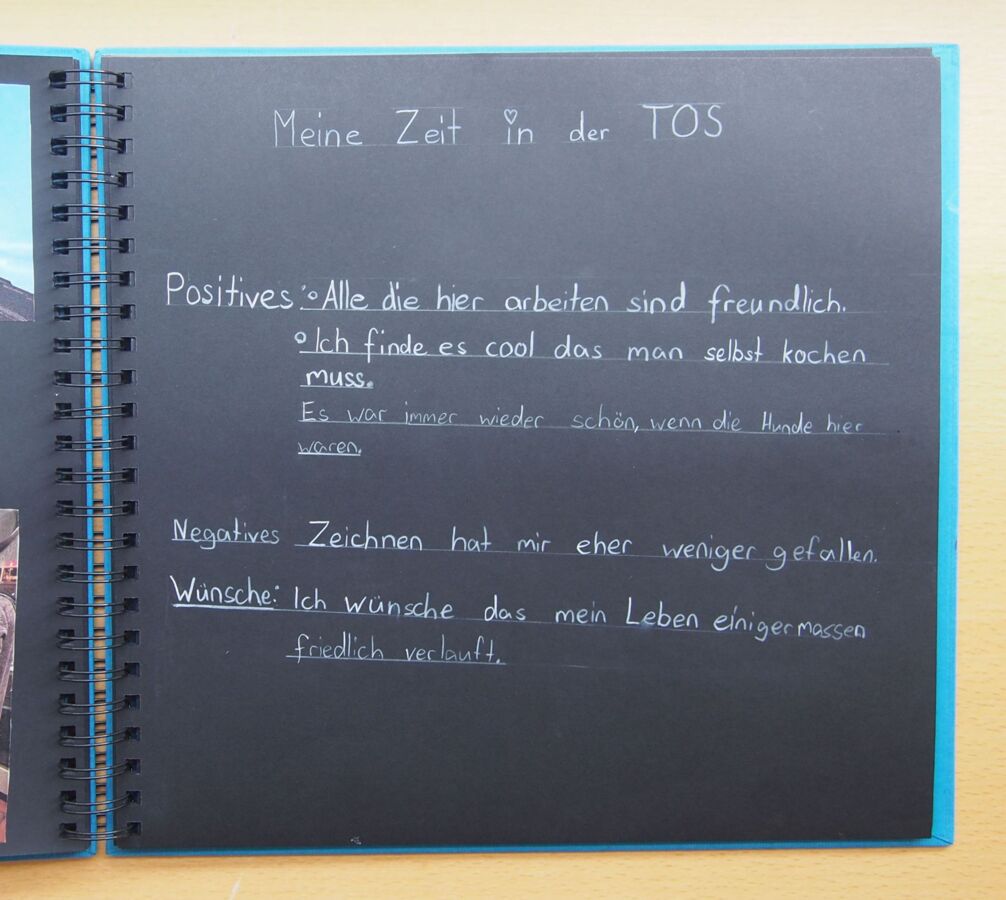 Meine Zeit in der TOS
Positives: ° Alle die hier arbeiten sind freundlich.
° Ich finde es cool das man selbst kochen
muss.
Es war immer wieder schön, wenn die Hunde hier
waren.
Negatives Zeichnen hat mir eher weniger gefallen.
Wünsche: Ich wünsche das mein Leben einigermassen
friedlich verlauft.